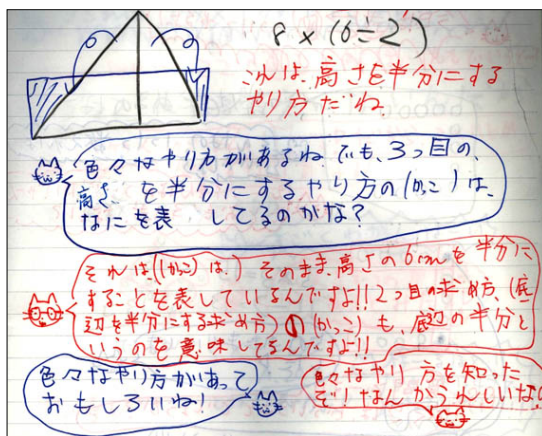 8×(6÷2)
これは、高さを半分にする
やり方だね
色々なやり方があるね でも、3つ目の、
高さ を半分にするやり方の(かっこ)は、
なにを表 してるのかな?
それは、(かっこ)は、)そのまま、高さの6cmを半分に
することを表しているんですよ!!2つ目の求め方、(底
辺を半分にする求め方)の(かっこ)も、底辺の半分と
いうのを意味してるんですよ!!
色々なやり方があって
おもしろいね!
色々なやり方を知った
ぞ!なんかうれしいな!